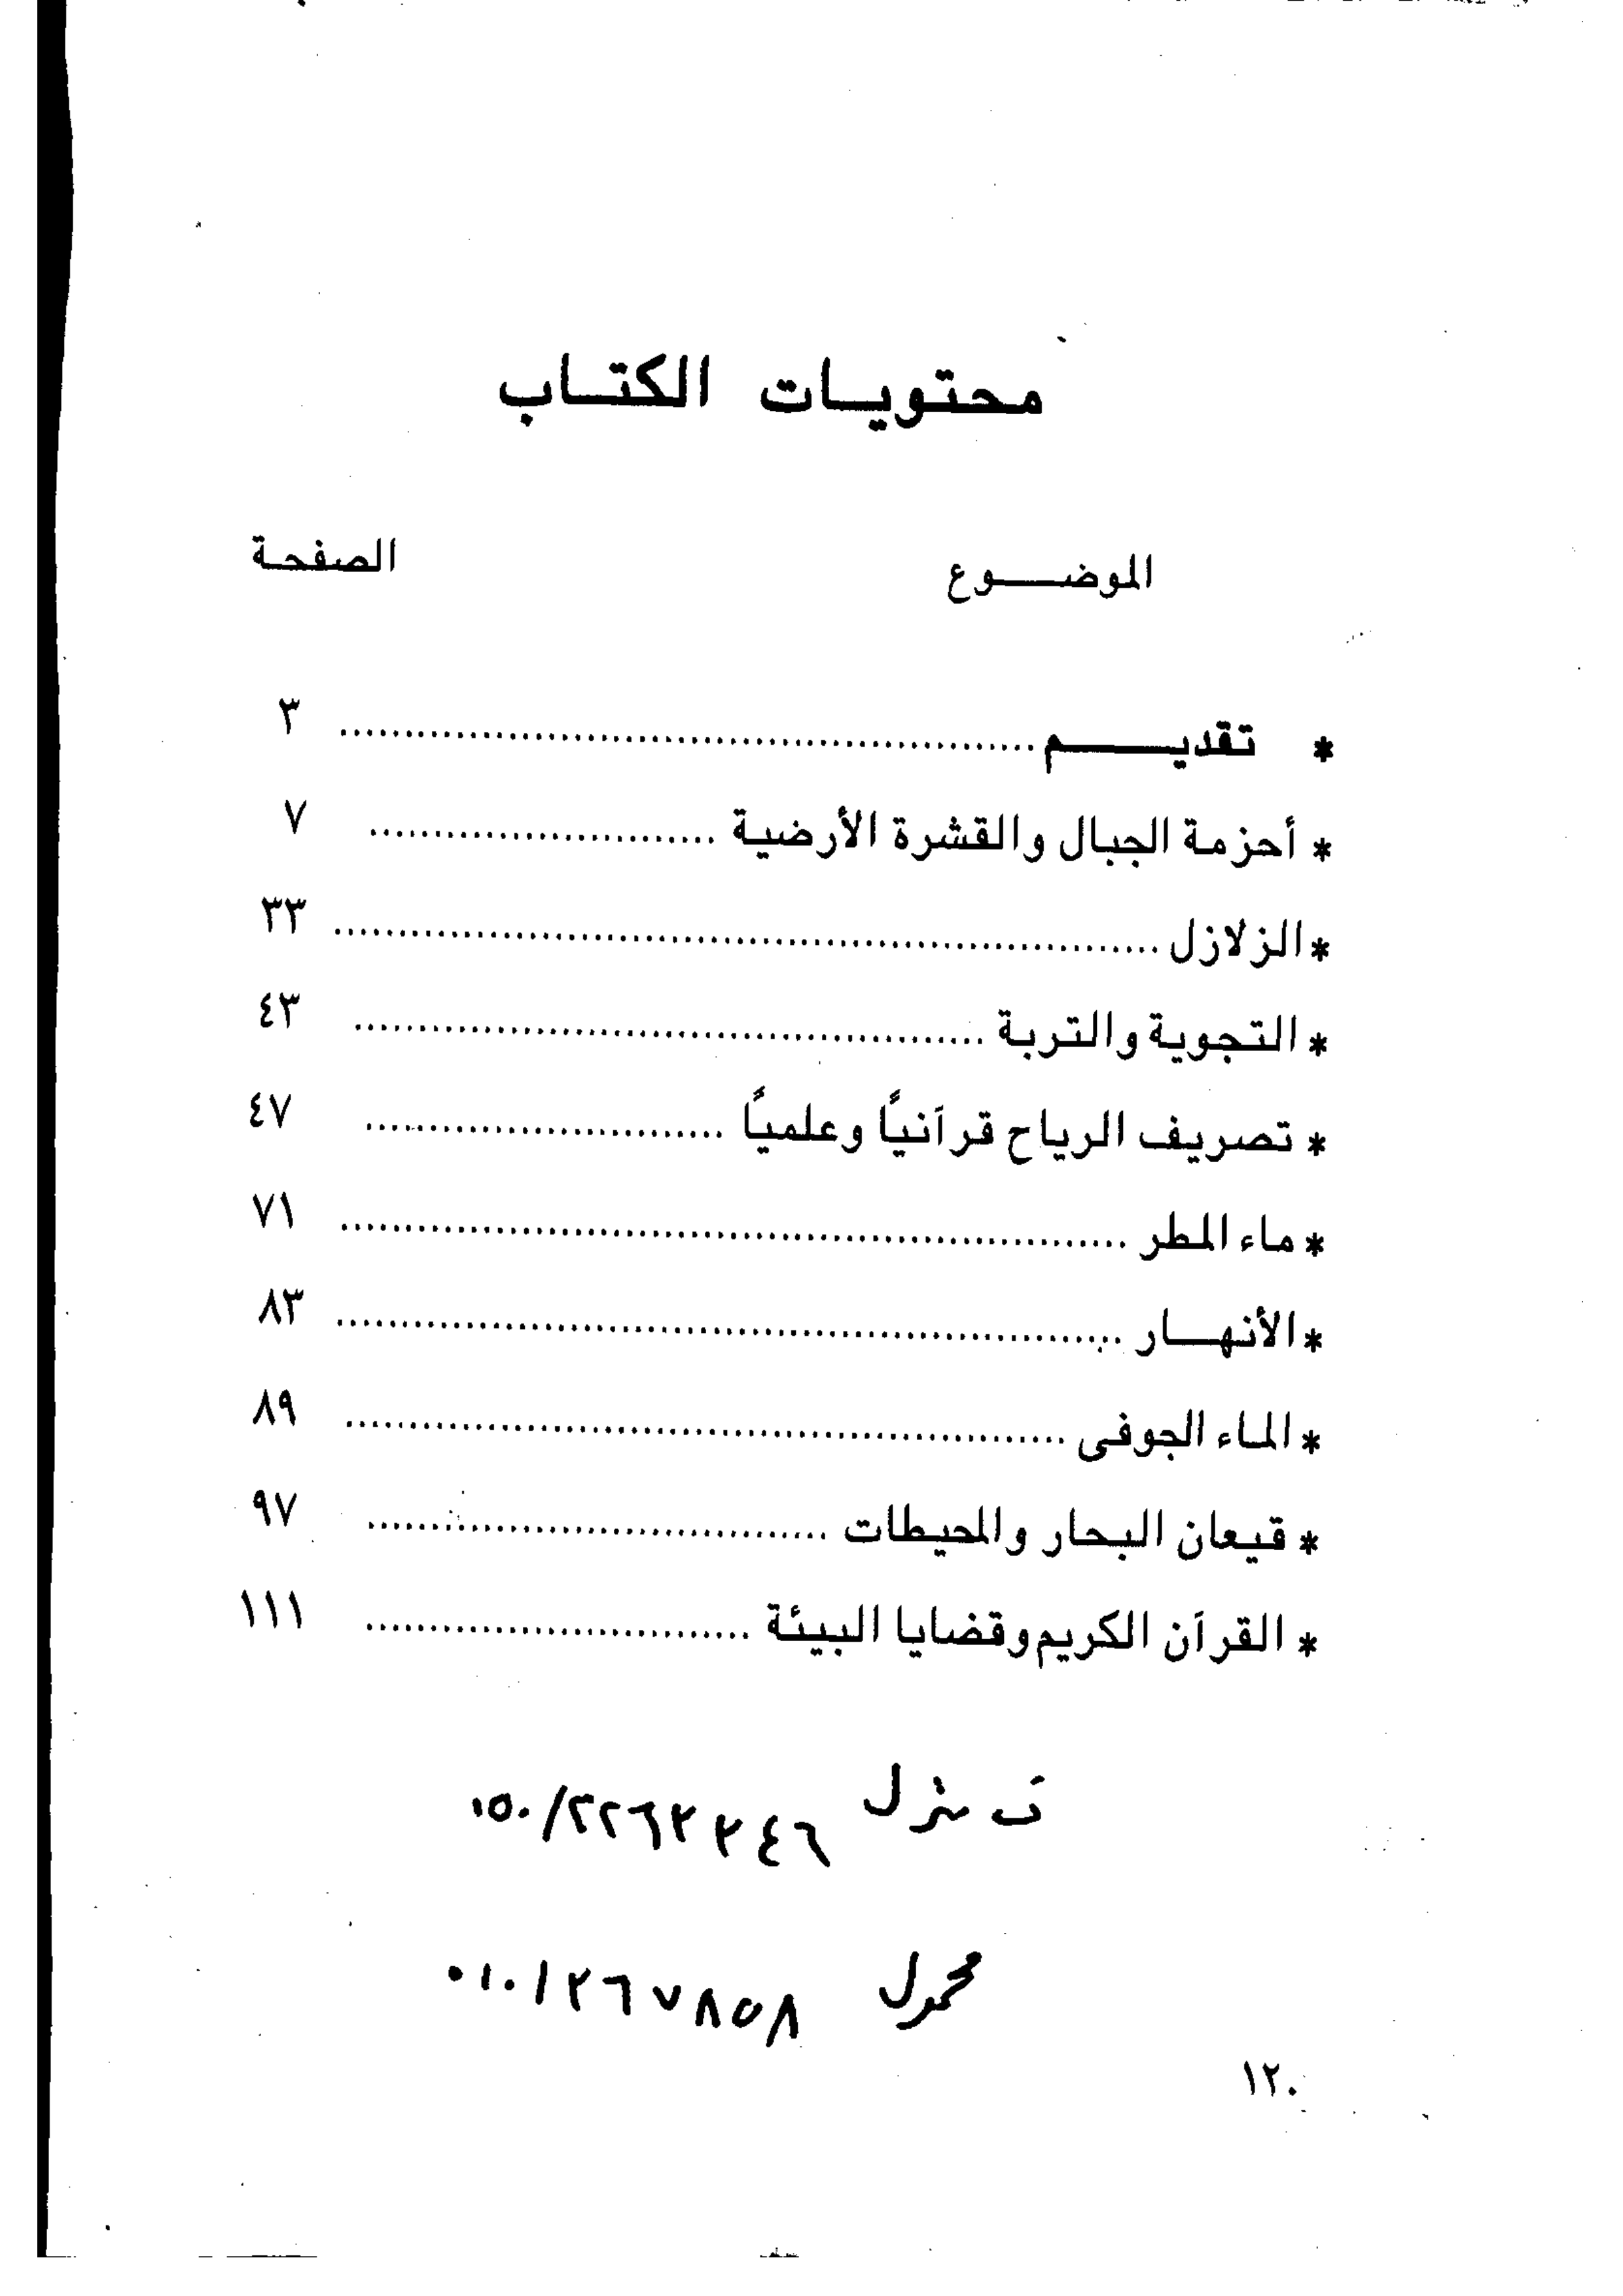 محتويات الكتاب
الموضوع الصفحة
* تقديم ........ ٣
* أحزمة الجبال والقشرة الأرضية ........ ٧
* الزلازل ........ ٣٣
* التجوية والتربة ........ ٤٣
* تصريف الرياح قرآنياً وعلمياً ........ ٤٧
* ماء المطر ........ ٧١
* الأنهار ........ ٨٣
* الماء الجوفى ........ ٨٩
* قيعان البحار والمحيطات ........ ٩٧
* القرآن الكريم وقضايا البيئة ........ ١١١
ت منزل
محمول
١٢٠